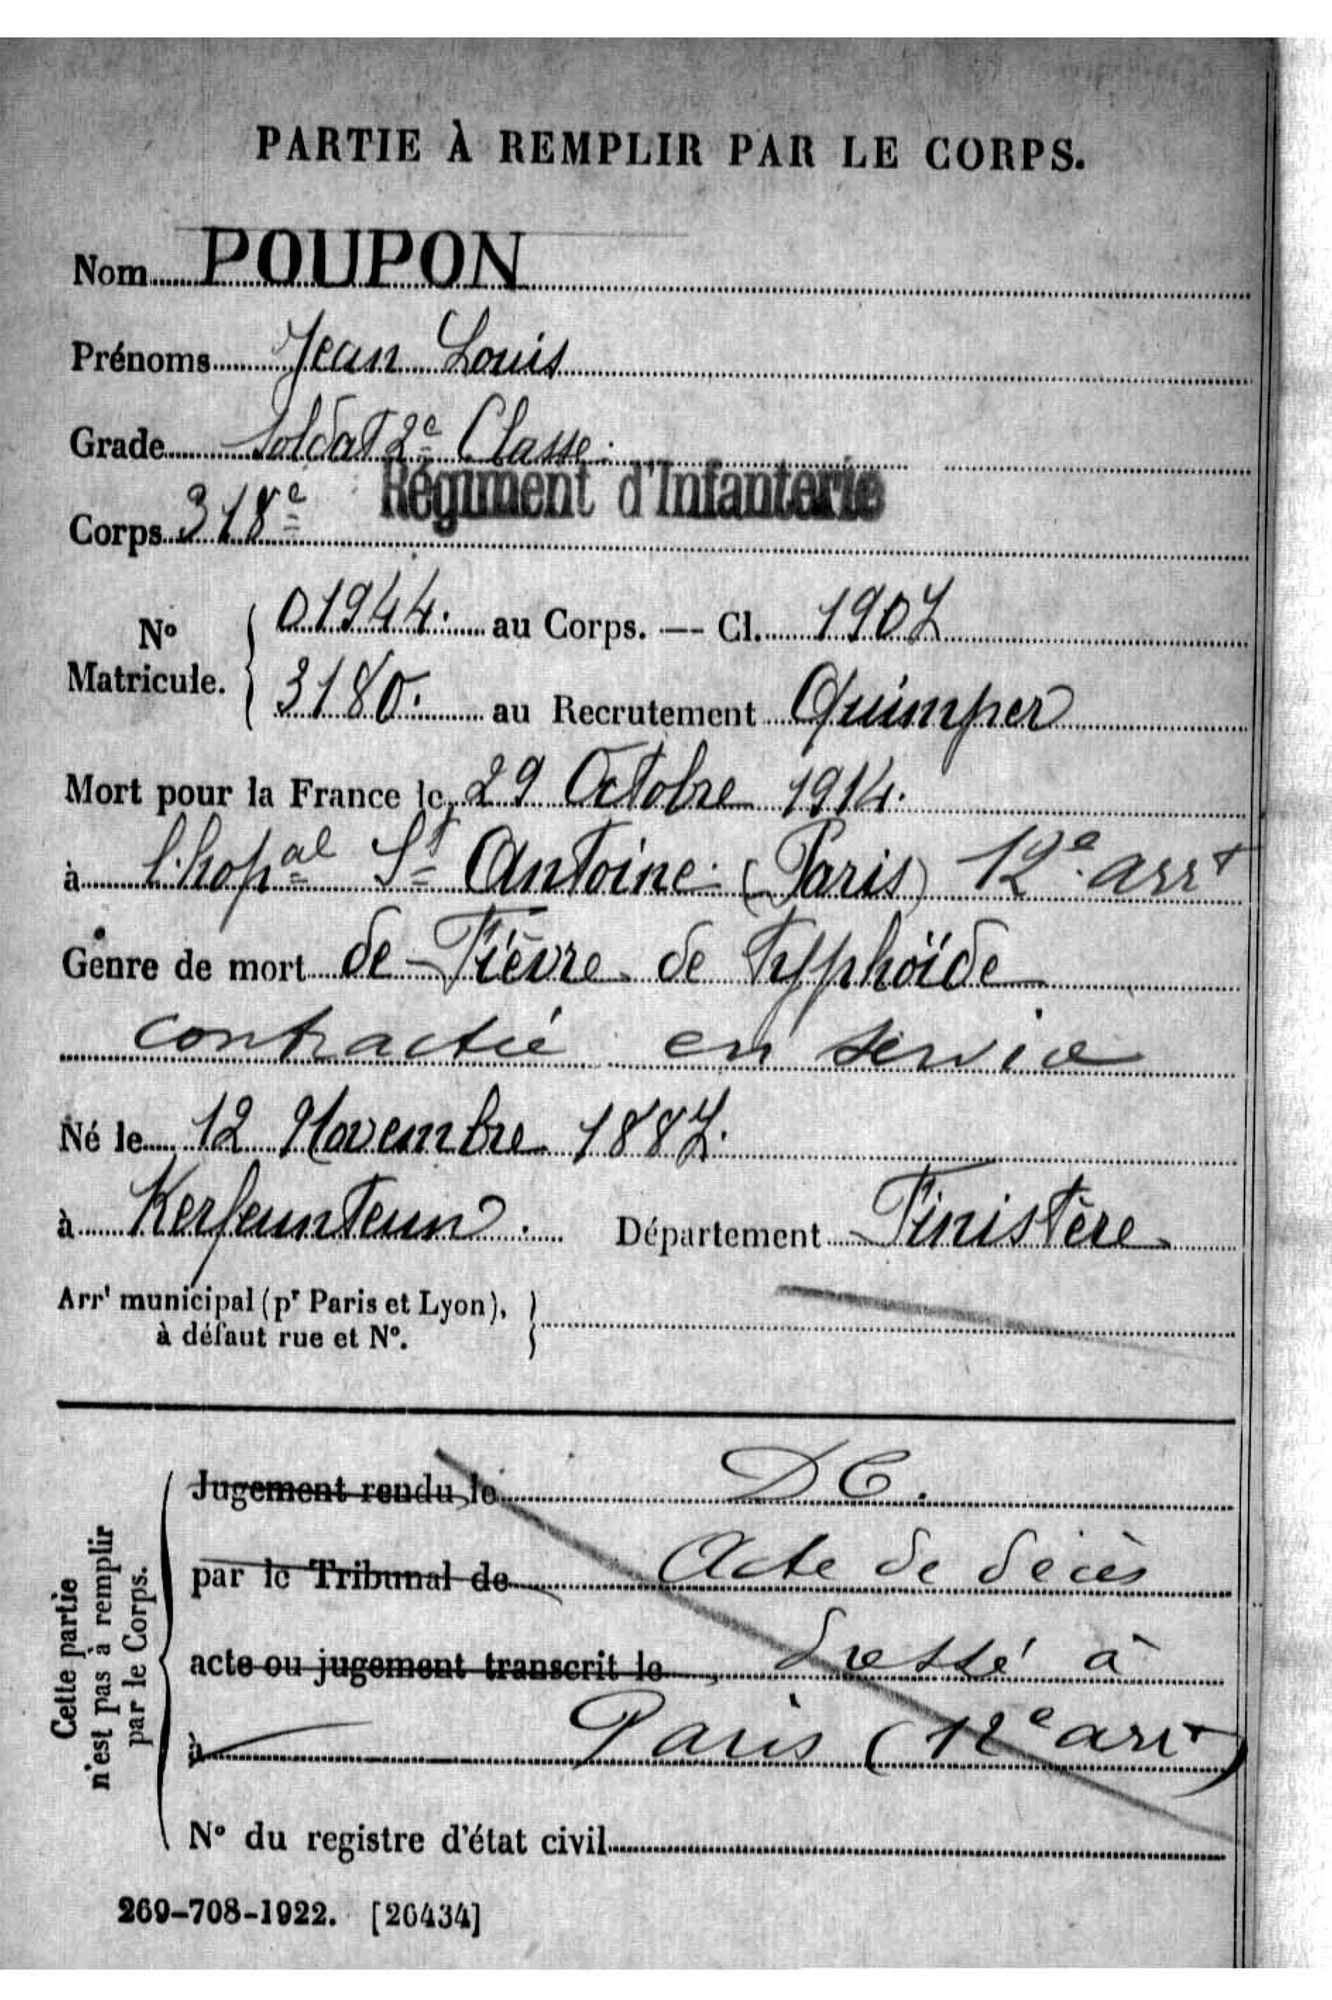 PARTIE À REMPLIR PAR LE CORPS.
Nom POUPON
Prénoms Jean Louis
Grade Soldat 2e Classe.
Corps 318e Régiment d'Infanterie
N° Matricule. { 01944. au Corps. — Cl. 1907
3180. au Recrutement Quimper
Mort pour la France le 29 Octobre 1914.
à l'hopal St Antoine (Paris) 12e arrt
Genre de mort de Fièvre de Typhoïde
contractée en service
Né le 12 Novembre 1887.
à Kerfeunteun. Département Finistère
Arrt municipal (pr Paris et Lyon), }
à défaut rue et N°.
Cette partie
n'est pas à remplir
par le Corps.
Jugement rendu le D C.
par le Tribunal de Acte de décès
acte ou jugement transcrit le dressé à
à Paris (12e arrt)
N° du registre d'état civil
269-708-1922. [26434]